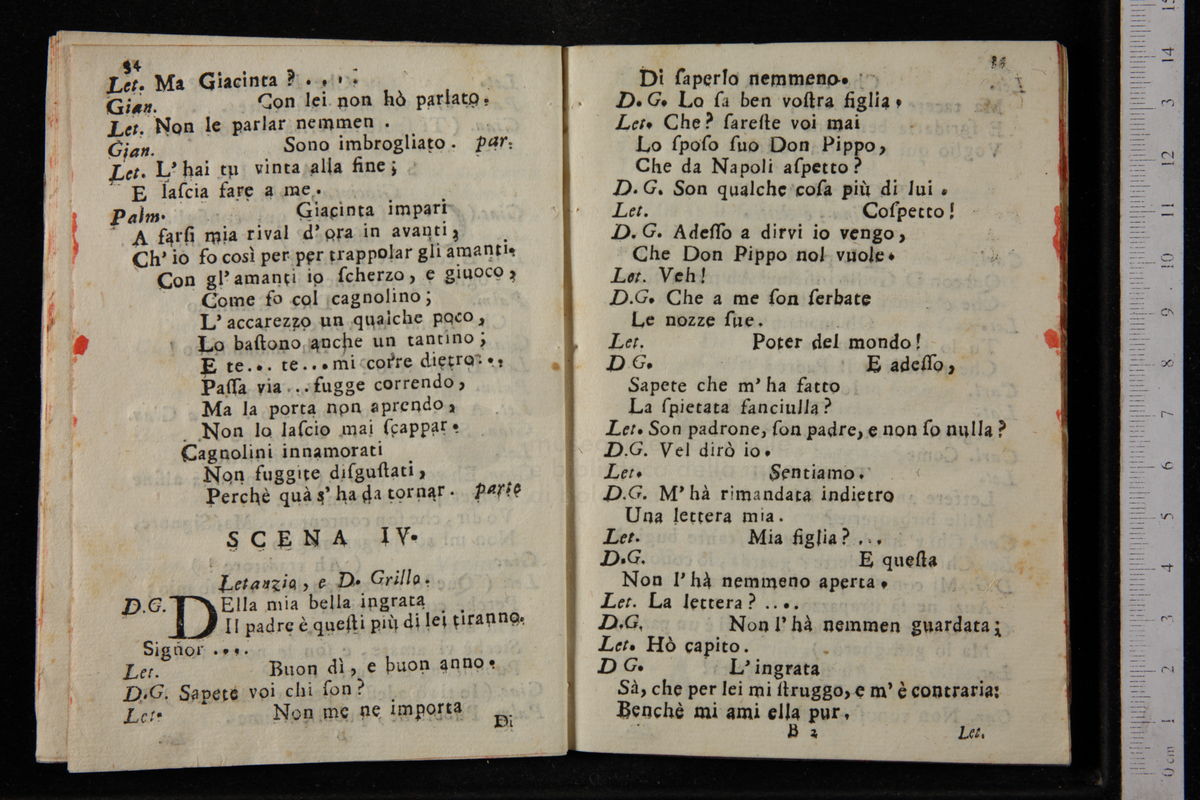 34
Let. Ma Giacinta ? . . . .
Gian. Con lei non hò parlato.
Let. Non le parlar nemmen .
Gian. Sono imbrogliato . par.
Let. L' hai tu vinta alla fine ;
E laſcia fare a me.
Palm. Giacinta impari
A farſi mia rival d'ora in avanti,
Ch' io fo così per per trappolar gli amanti.
Con gl' amanti io ſcherzo , e giuoco ,
Come fo col cagnolino ;
L' accarezzo un qualche poco ,
Lo baſtono anche un tantino ;
E te... te...mi corre dietro...
Paſſa via ...fugge correndo ,
Ma la porta non aprendo ,
Non lo laſcio mai ſcappar.
Cagnolini innamorati
Non fuggite diſguſtati ,
Perchè quà s' ha da tornar . parte
SCENA IV.
Letanzio , e D. Grillo .
D.G. DElla mia bella ingrata
Il padre è queſti più di lei tiranno.
Signor ....
Let. Buon dì , e buon anno.
D.G. Sapete voi chi ſon?
Let. Non me ne importa
Di
Di ſaperlo nemmeno.
D. G. Lo ſa ben voſtra figlia ,
Let. Che? ſareſte voi mai
Lo ſpoſo ſuo Don Pippo,
Che da Napoli aſpetto?
D. G. Son qualche coſa più di lui .
Let. Coſpetto!
D. G. Adeſſo a dirvi io vengo,
Che Don Pippo nol vuole.
Let. Veh!
D.G. Che a me ſon ſerbate
Le nozze ſue.
Let. Poter del mondo!
D G. E adeſſo,
Sapete che m' ha fatto
La ſpietata fanciulla?
Let. Son padrone, ſon padre, e non ſo nulla?
D.G. Vel dirò io.
Let. Sentiamo.
D.G. M' hà rimandata indietro
Una lettera mia.
Let. Mia figlia? ...
D.G. E queſta
Non l' hà nemmeno aperta.
Let. La lettera? ....
D.G. Non l' hà nemmen guardata;
Let. Hò capito.
D G. L'ingrata
Sà, che per lei mi ſtruggo, e m' è contraria:
Benchè mi ami ella pur.
B 2 Let.